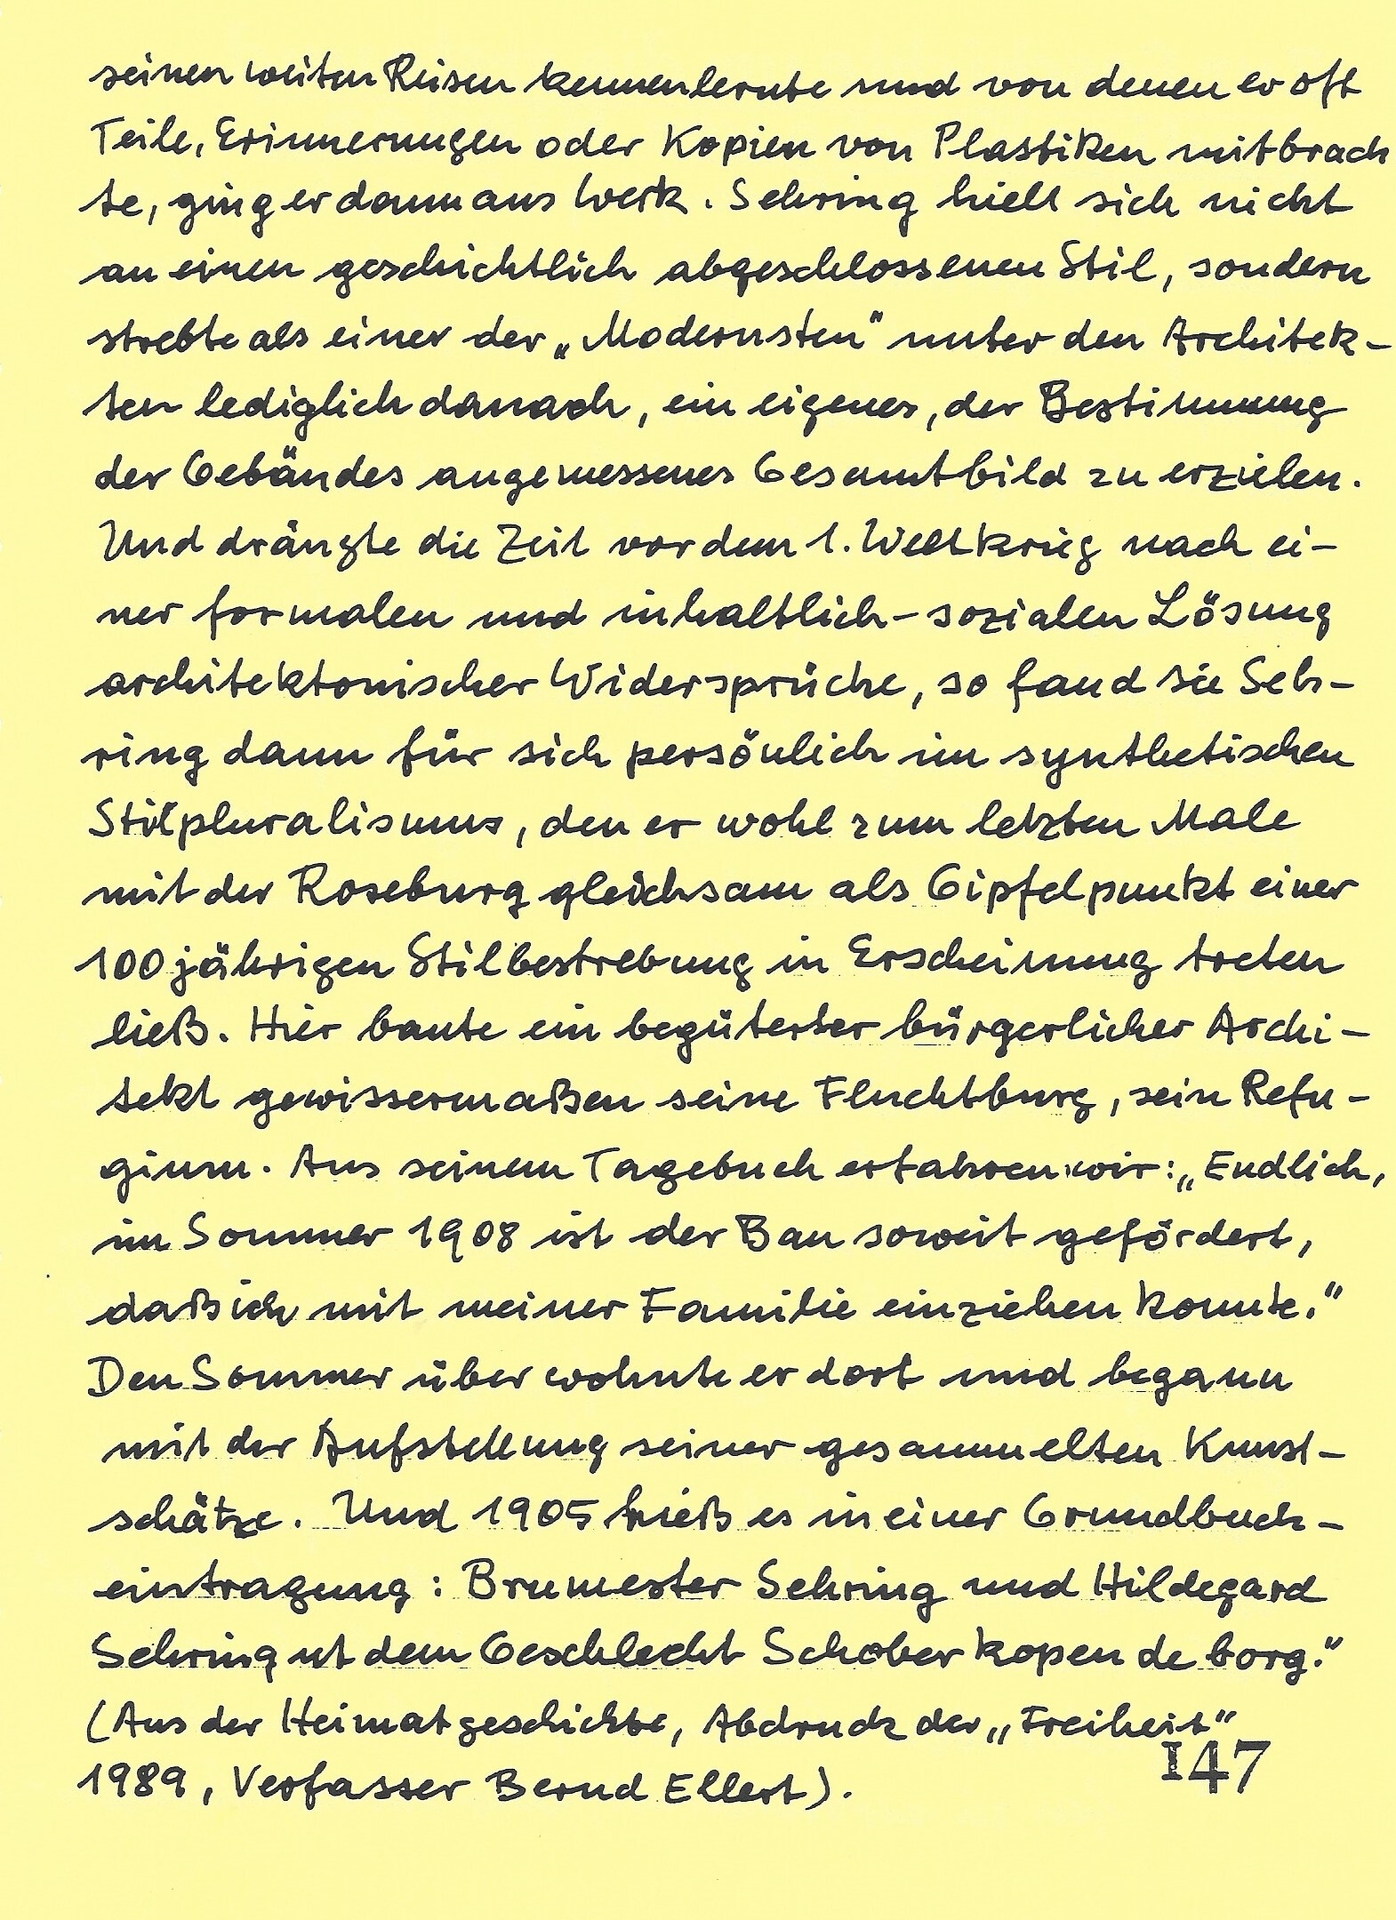 seinen weiten Reisen kennenlernte und von denen er oft
Teile, Erinnerungen oder Kopien von Plastiken mitbrach
te, ging er dann ans Werk. Sehring hielt sich nicht
an einen geschichtlich abgeschlossenen Stil, sondern
strebte als einer der „Modernsten" unter den Architek-
ten lediglich danach, ein eigenes, der Bestimmung
der Gebäudes angemessenes Gesamtbild zu erzielen.
Und drängte die Zeit vor dem 1. Weltkrieg nach ei-
ner formalen und inhaltlich-sozialen Lösung
architektonischer Widersprüche, so fand sie Seh-
ring dann für sich persönlich im synthetischen
Stilpluralismus, den er wohl zum letzten Male
mit der Roseburg gleichsam als Gipfelpunkt einer
100jährigen Stilbestrebung in Erscheinung treten
ließ. Hier baute ein begüterter bürgerlicher Archi-
tekt gewissermaßen seine Fluchtburg, sein Refu-
gium. Aus seinem Tagebuch erfahren wir: „Endlich,
im Sommer 1908 ist der Bau soweit gefördert,
daß ich mit meiner Familie einziehen konnte."
Den Sommer über wohnte er dort und begann
mit der Aufstellung seiner gesammelten Kunst-
schätze. Und 1905 hieß es in einer Grundbuch-
eintragung: Brumester Sehring und Hildegard
Sehring ut dem Geschlecht Schober kopen de borg."
(Aus der Heimatgeschichte, Abdruck der „Freiheit"
1989, Verfasser Bernd Ellert).
147